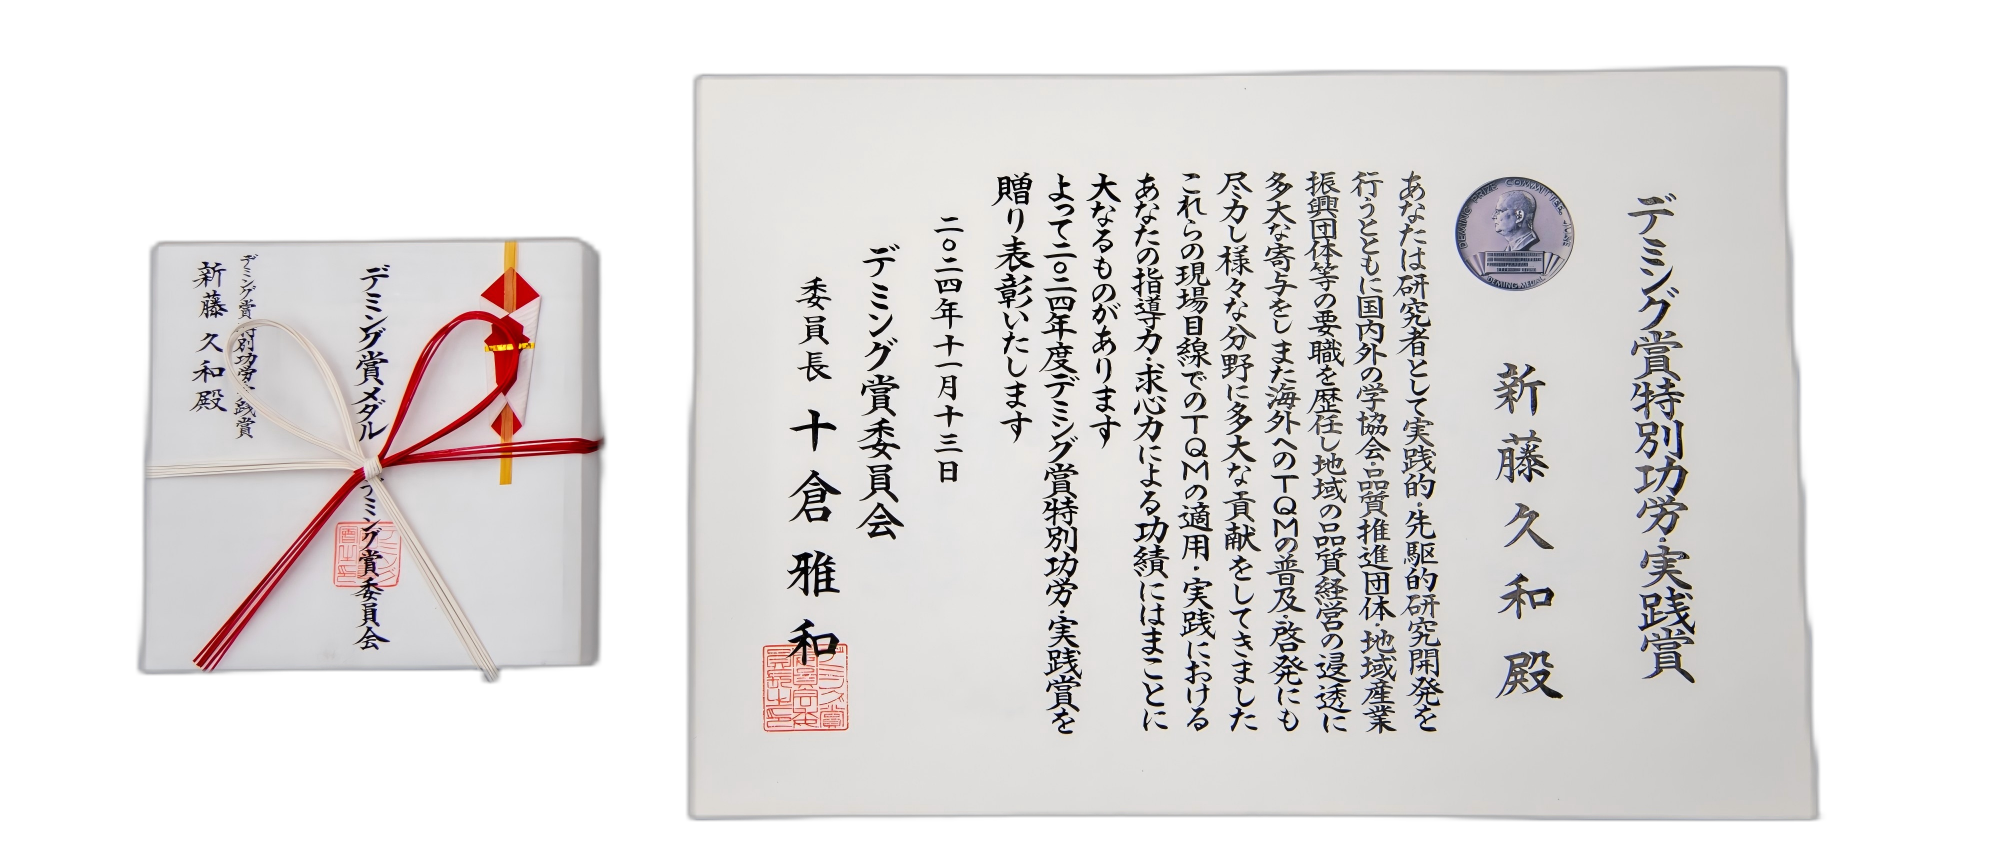 デミング賞メダル
デミング賞委員会
デミング賞
新藤久和殿
デミング賞特別功労・実践賞
DEMING PRIZE COMMITTEE, JUSE
DEMING MEDAL
新藤久和殿
あなたは研究者として実践的・先駆的研究開発を
行うとともに国内外の学協会・品質推進団体・地域産業
振興団体等の要職を歴任し地域の品質経営の浸透に
多大な寄与をしまた海外へのTQMの普及・啓発にも
尽力し様々な分野に多大な貢献をしてきました
これらの現場目線でのTQMの適用・実践における
あなたの指導力・求心力による功績にはまことに
大なるものがあります
よって二〇二四年度デミング賞特別功労・実践賞を
贈り表彰いたします
二〇二四年十一月十三日
デミング賞委員会
委員長 十倉雅和